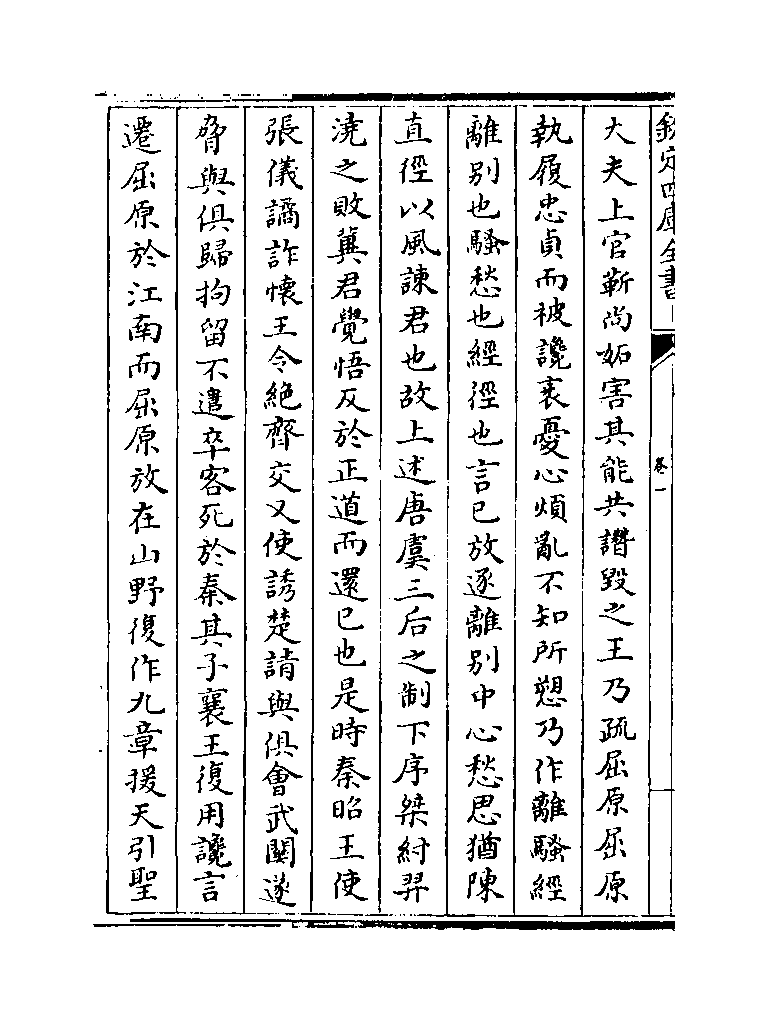 欽定四庫全書
卷一
大夫上官靳尚妬害其能共譖毀之王乃疏屈原屈原
執履忠貞而被讒衺憂心煩亂不知所愬乃作離騷經
離别也騷愁也經徑也言已放逐離别中心愁思猶陳
直徑以風諫君也故上述唐虞三后之制下序桀紂羿
澆之敗冀君覺悟反於正道而還已也是時秦昭王使
張儀譎詐懷王令絶齊交又使誘楚請與俱會武關遂
脅與俱歸拘留不遣卒客死於秦其子襄王復用讒言
遷屈原於江南而屈原放在山野復作九章援天引聖